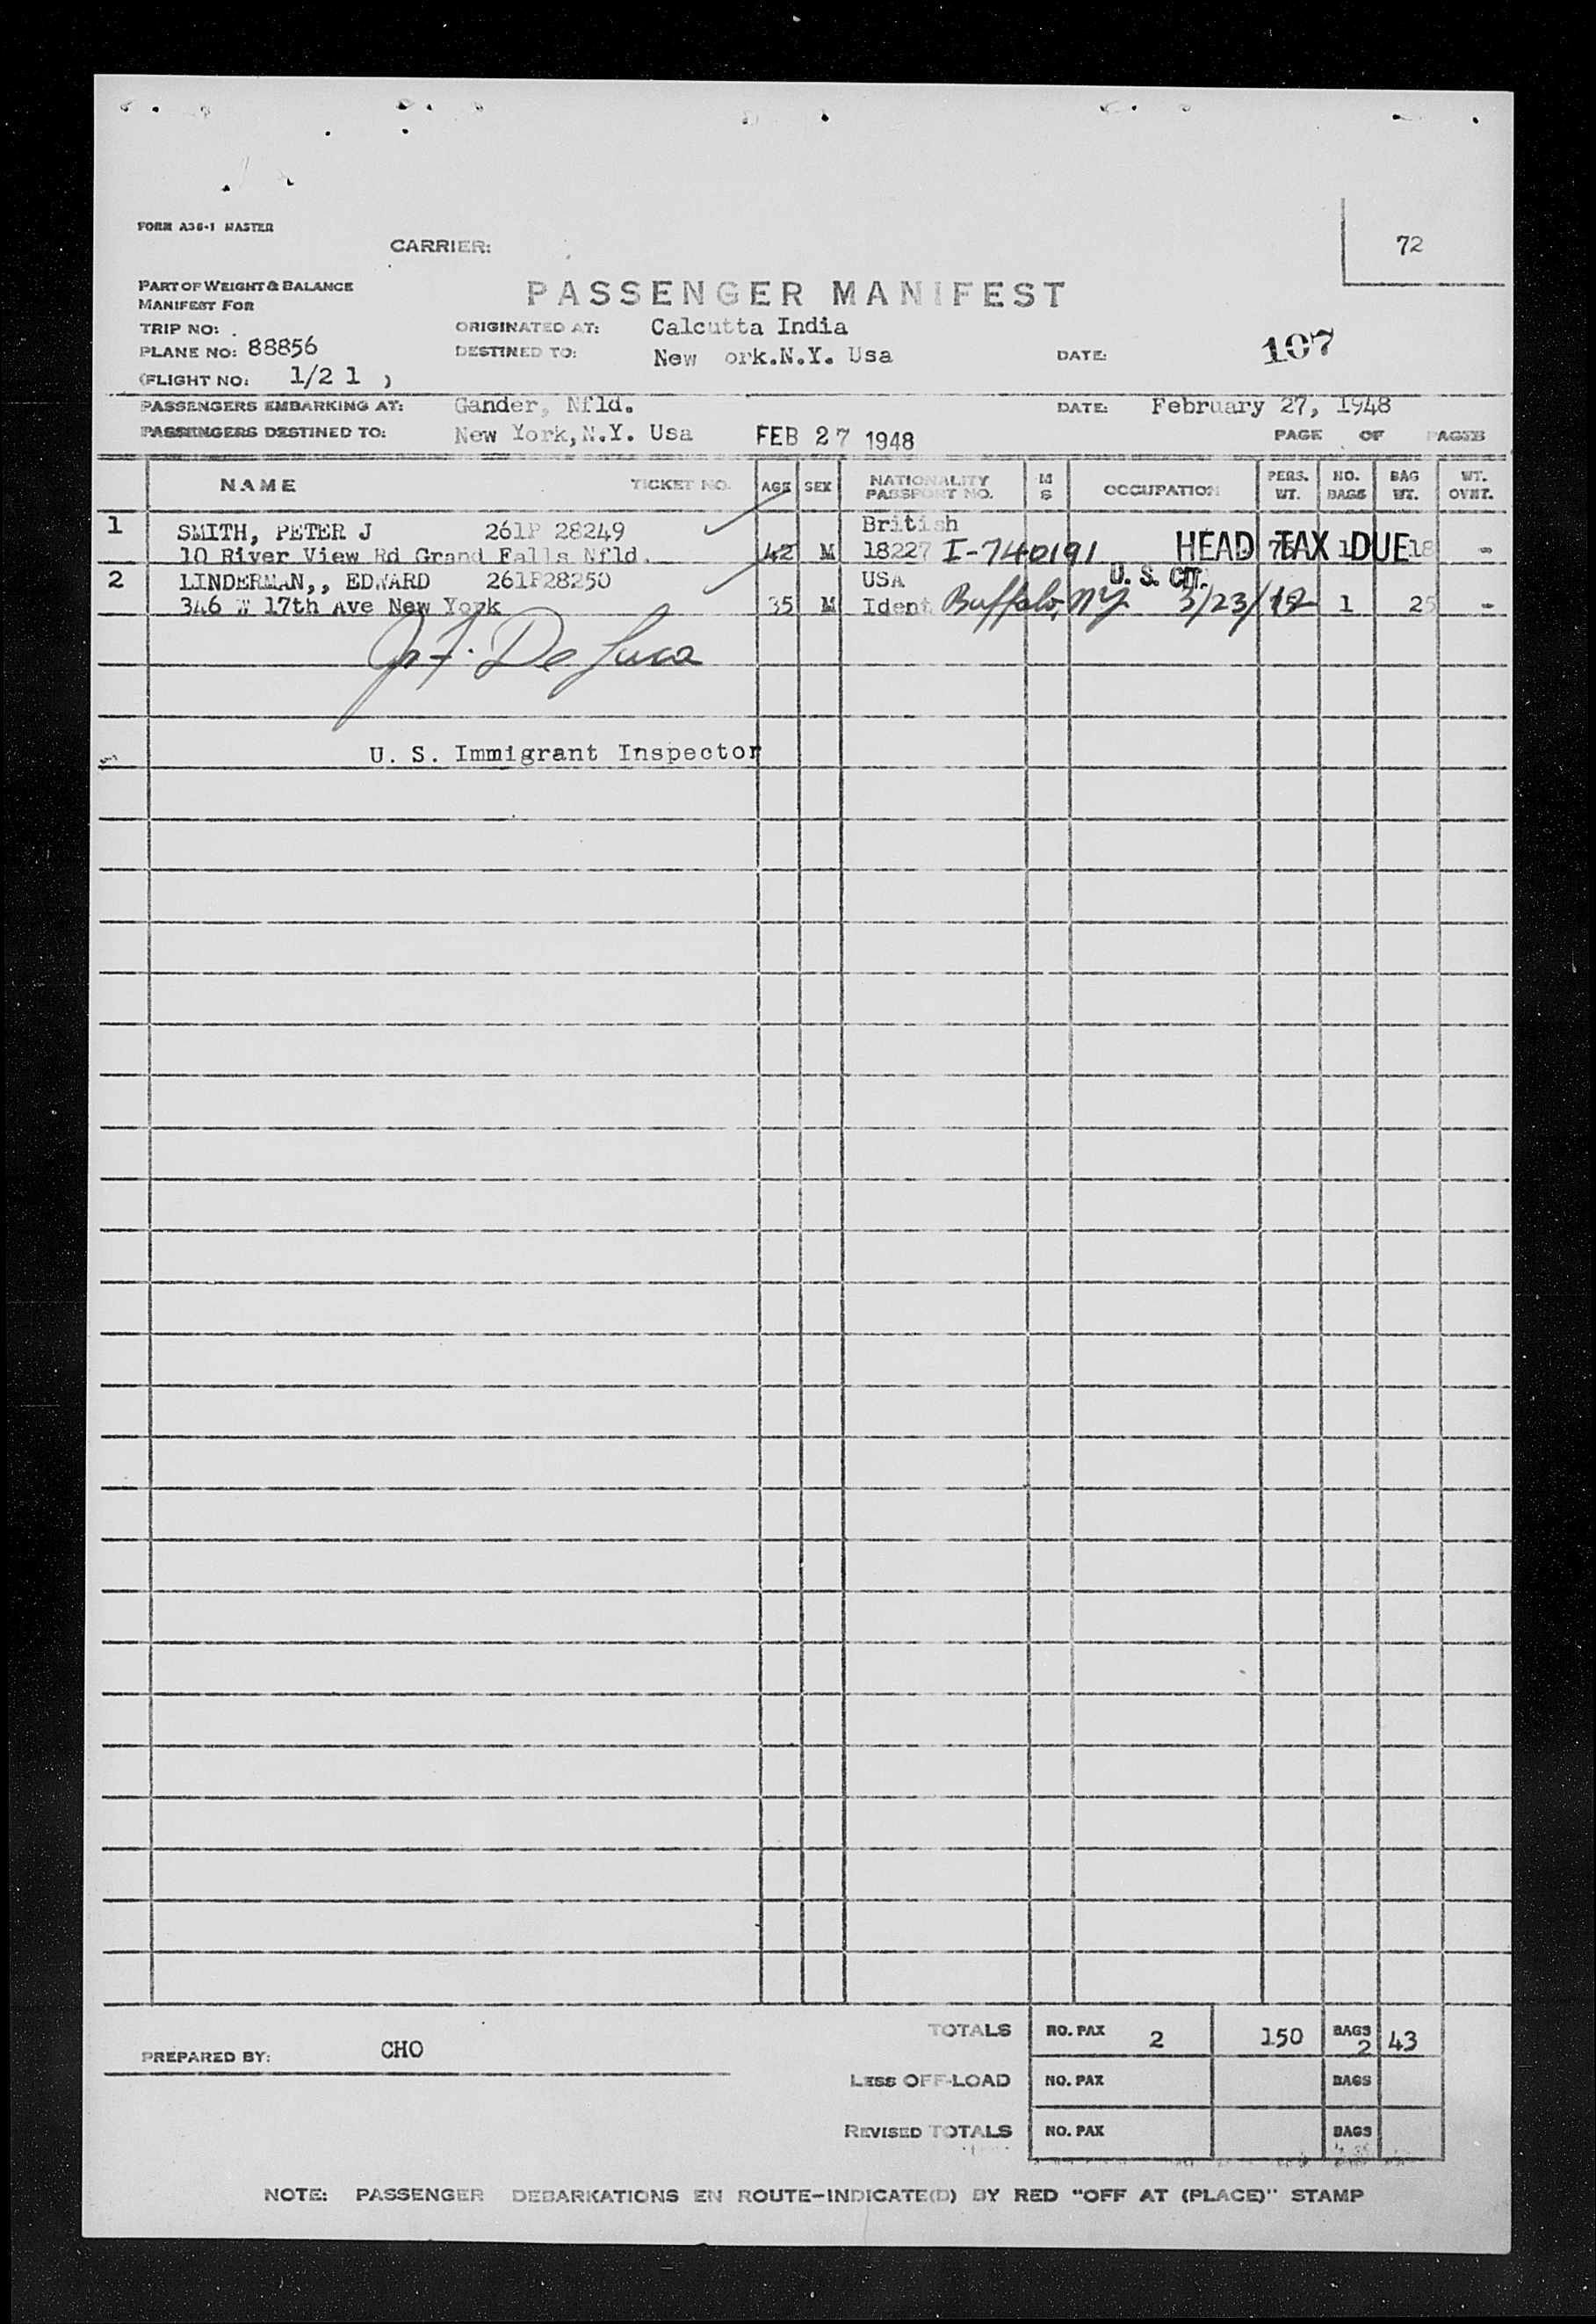 FORM A36-1 MASTER
CARRIER:
72
PART OF WEIGHT & BALANCE
MANIFEST FOR
PASSENGER MANIFEST
TRIP NO:
ORIGINATED AT: Calcutta India
PLANE NO: 88856
DESTINED TO: New ork.N.Y. Usa
DATE:
107
(FLIGHT NO: 1/2 1 )
PASSENGERS EMBARKING AT: Gander, Nfld.
DATE: February 27, 1948
PASSENGERS DESTINED TO: New York,N.Y. Usa
FEB 27 1948
PAGE OF PAGES
NAME TICKET NO. AGE SEX NATIONALITY PASSPORT NO. M S OCCUPATION PERS. WT. NO. BAGS BAG WT. WT. OVNT.
1 SMITH, PETER J 261P 28249 British
10 River View Rd Grand Falls Nfld. 42 M 18227 I-740191 HEAD TAX DUE 1 18 -
2 LINDERMAN,, EDWARD 261P28250 USA U. S. CIT.
346 W 17th Ave New York 35 M Ident Buffalo, NY 3/23/12 1 25 -
De Luca
U. S. Immigrant Inspector
TOTALS NO. PAX 2 150 BAGS 2 43
PREPARED BY: CHO
LESS OFF-LOAD NO. PAX BAGS
REVISED TOTALS NO. PAX BAGS
NOTE: PASSENGER DEBARKATIONS EN ROUTE-INDICATE(D) BY RED "OFF AT (PLACE)" STAMP